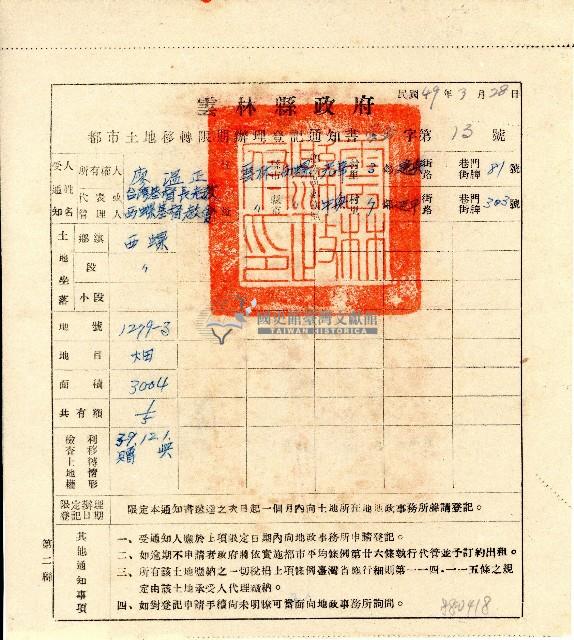 民國49年3月28日
雲林縣政府
都市土地移轉限期辦理登記通知書 字第13號
受通知人姓名
所有權人 廖溢正 雲林 西螺 街路 巷門街牌81號
代表或管理人 台灣基督長老教 西螺基督教會 〃 〃 街路 巷門街牌303號
土地坐落
鄉鎮 西螺
段 〃
小段
地號 1279-3
地目 畑
面積 3004
共有額 1/5
檢查土地權利移轉情形 39.12.1. 贈與
限定辦理登記日期 限定本通知書送達之次日起一個月內向土地所在地地政事務所聲請登記。
其他通知事項
一、受通知人應於上項限定日期內向地政事務所申請登記。
二、如逾期不申請者政府將依實施都市平均條例第廿六條執行代管並予訂約出租。
三、所有該土地應納之一切稅捐上項條例臺灣省施行細則第一一四、一一五條之規定由該土地承受人代理繳納。
四、如對登記申請手續尚未明瞭可當面向地政事務所詢問。
第二聯
880418
國史館臺灣文獻館
TAIWAN HISTORICA